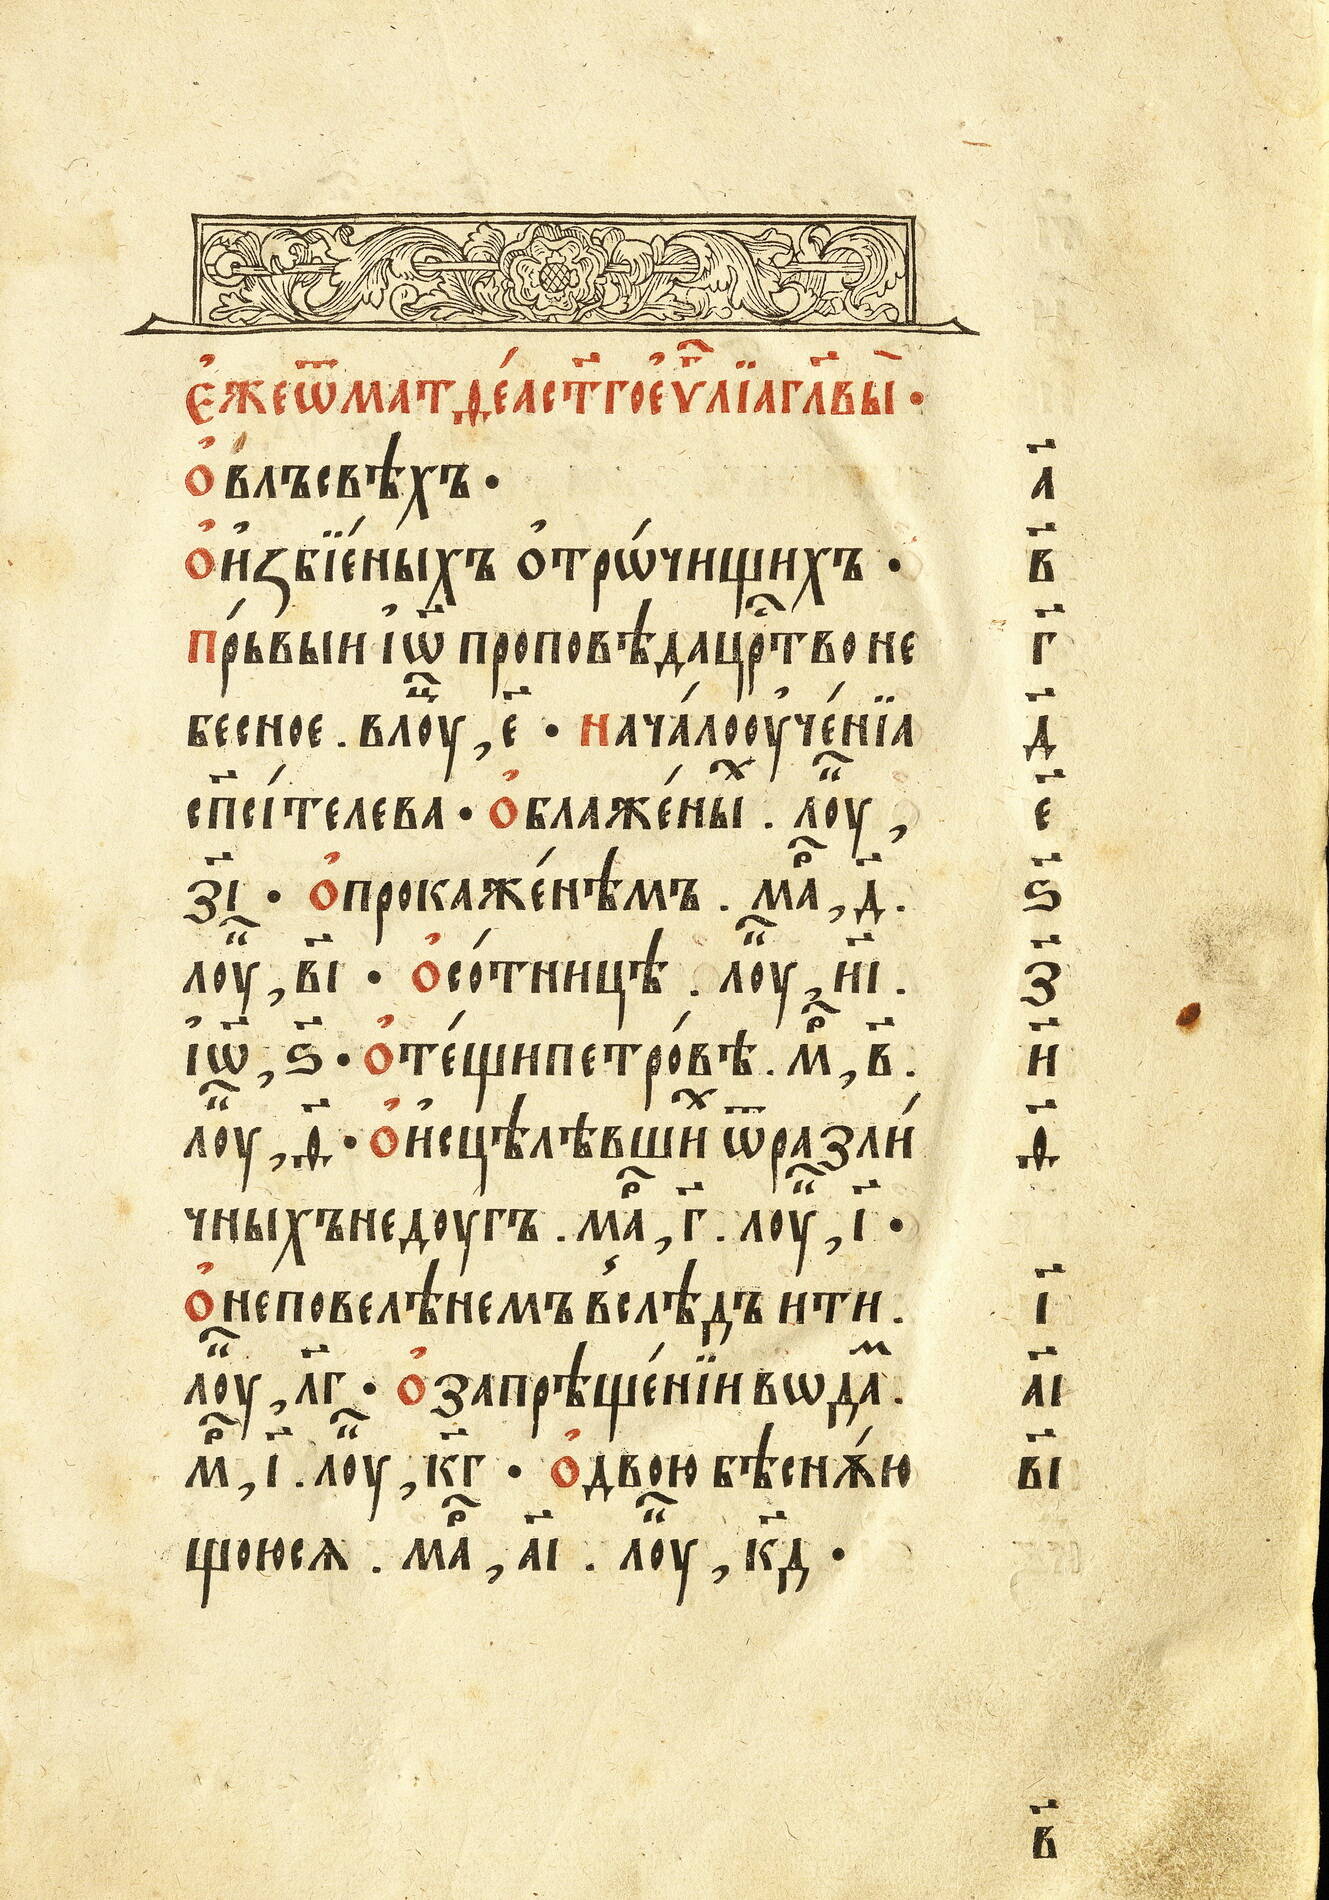 Є҆жеѿматѳе́аст҃гоє҆ѵⷢ҇лїагл҃вы̀ •
О҆влъсвѣхъ • а҃
О҆и҆ꙁбїе́ныхъ о҆трѡ́чищихъ • в҃
пр́ьвыи і҆ѡ҃ проповѣдацрⷭ҇тво не г҃
бесное . влоⷰу , е҃ • нача́лооу҆че́нїа д҃
сп҃сі́телева • О҆блаже́ныⷯ . лоⷦ҇у , е҃
з҃і • О҆прокаже́нѣмъ . маⷬ , д҃ . ѕ҃
лоⷦ҇у , в҃і • О҆со́тницѣ . лоⷦ҇у , н҃і . з҃
і҆ѡ҃ , ѕ҃ • О҆те́щипетро́вѣ . мⷬ , в҃ . н҃
лоⷦ҇у , ѳ҃ • О҆и҆сцѣлѣвшиⷯ ѿразли́ ѳ҃
чныхънедоугъ . маⷬ , г҃ . лоⷦ҇у , і҃ •
О҆неповелѣнемъ вⸯслѣдъ ити . і҃
лоⷦ҇у , л҃г • О҆запрѣще́нїи вѡдаⷨ . а҃і
мⷬ , і҃ . лоⷦ҇у , к҃г • О҆двою бѣснѧ́ю в҃і
щоюсѧ . маⷬ , а҃і . лоⷦ҇у , к҃д •
в҃